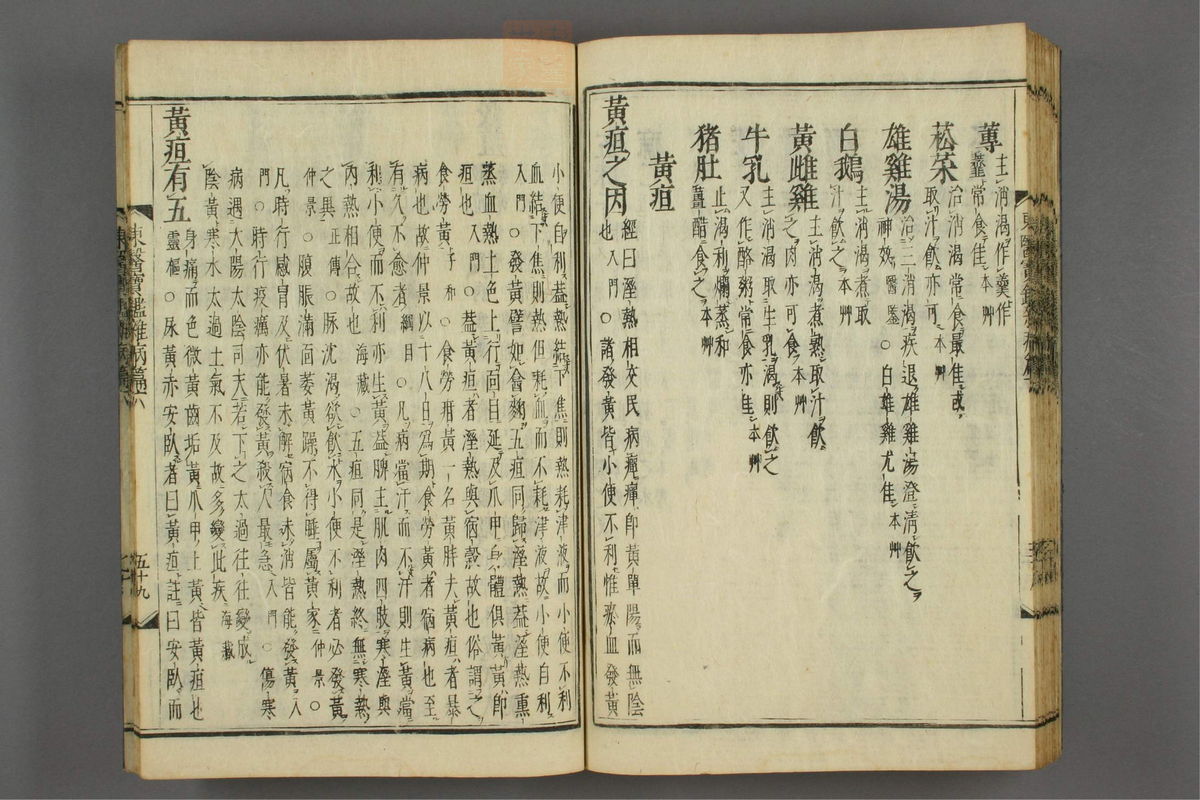 蓴
主消渴作羹作
虀常食佳本艸
菘菜
治消渴常食最佳或
取汁飲亦可本艸
雄雞湯
治三消渴疾退雄雞湯澄清飲之
神效醫鑑○白雄雞尤佳本艸
白鵝
主消渴煮取
汁飲之本艸
黃雌雞
主消渴煮熟取汁飲
之肉亦可食本艸
牛乳
主消渴取生乳渴則飲之
又作酪粥常食亦佳本艸
猪肚
止渴利爛蒸和
薑醋食之本艸
黃疸
黃疸之因
經曰溼熱相交民病癉癉卽黃單陽而無陰
也入門○諸發黃皆小便不利惟瘀血發黃
小便自利葢熱結下焦則熱耗津液而小便不利
血結下焦則熱但耗血而不耗津液故小便自利
入門○發黃譬如盦麯五疸同歸溼熱葢溼熱熏
蒸血熱土色上行面目延及爪甲身體俱黃黃卽
疸也入門○葢黃疸者溼熱與宿穀故也俗謂之
食勞黃子和○食勞疳黃一名黃胖夫黃疸者暴
病也故仲景以十八日爲期食勞黃者宿病也至
有久不愈者綱目○凡病當汗而不汗則生黃當
利小便而不利亦生黃葢脾主肌肉四肢寒溼與
內熱相合故也海藏○五疸同是溼熱終無寒熱
之異正傳○脉沈渴欲飲水小便不利者必發黃
仲景○腹脹滿面萎黃躁不得睡屬黃家仲景○
凡時行感冒及伏暑未解宿食未消皆能發黃入
門○時行疫癘亦能發黃殺人最急入門○傷寒
病遇太陽太陰司天若下之太過往往變成
陰黃寒水太過土氣不及故多變此疾海藏
黃疸有五
身痛而色微黃齒垢黃爪甲上黃皆黃疸也
靈樞○尿黃赤安臥者曰黃疸註曰安臥而
東醫寶鑑雜病篇六
五十九